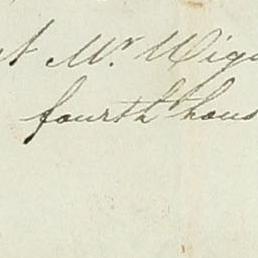 at Mr Wig
fourth hous